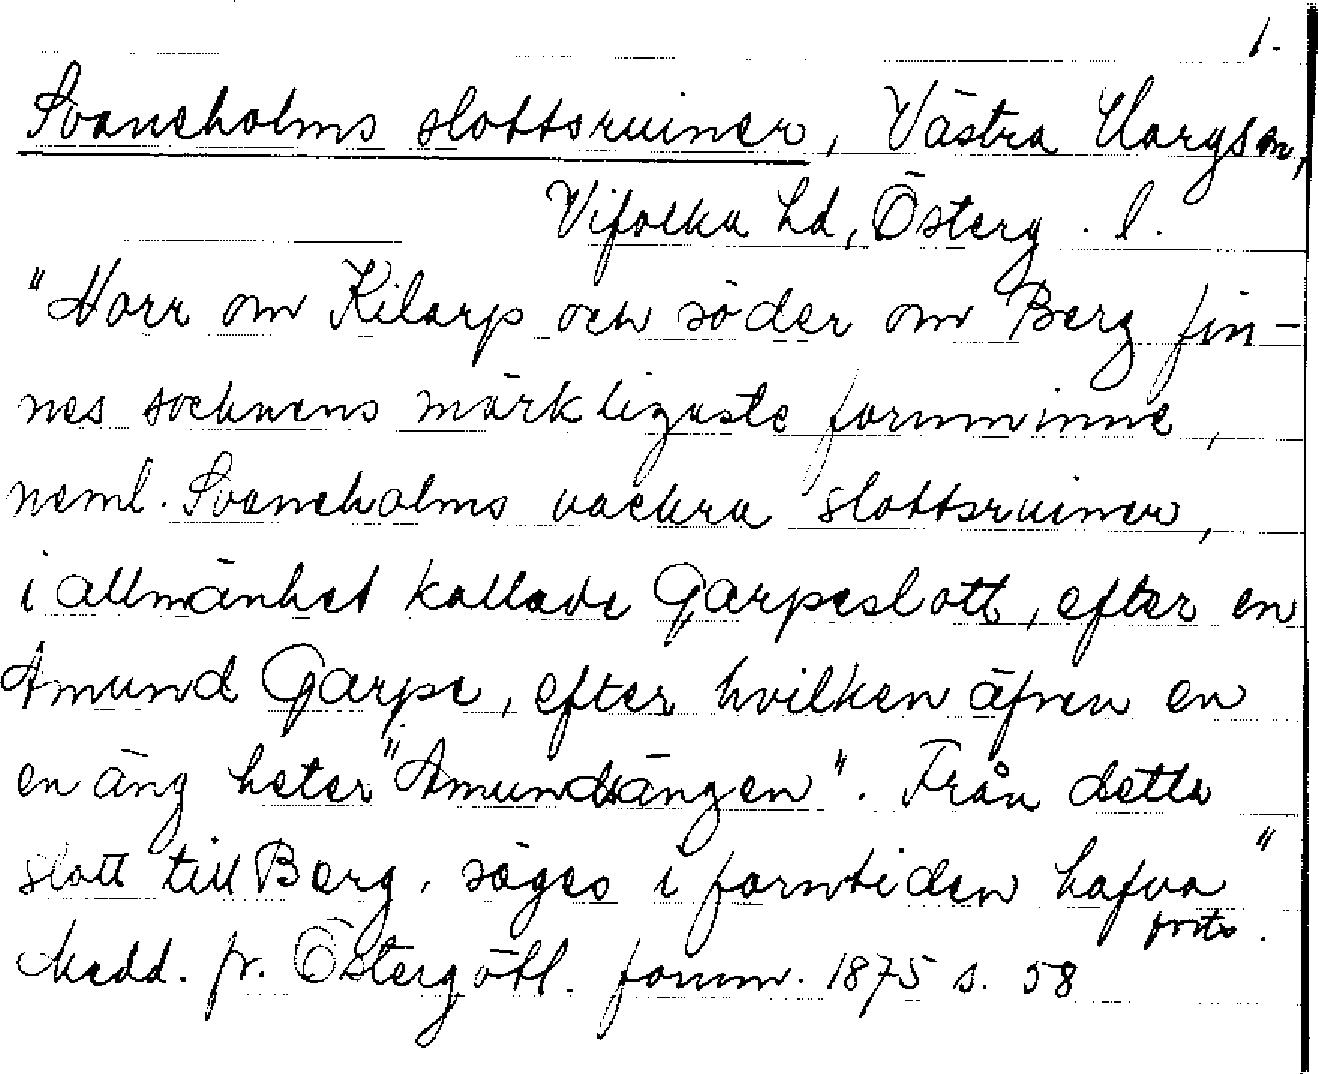 1.
Svaneholms slottsruiner, Västra Hargs sn,
Vifolka hd, Österg. l.
"Norr om Kilarp och söder om Berg fin-
nes socknens märkligaste fornminne,
neml. Svaneholms vackra slottsruiner,
i allmänhet kallade Garpeslott, efter en
Amund Garpe, efter hvilken äfven en
en äng heter "Amundsängen". Från detta
slott till Berg, säges i forntiden hafva"
forts.
Medd. fr. Östergötl. fornm. 1875 s. 58